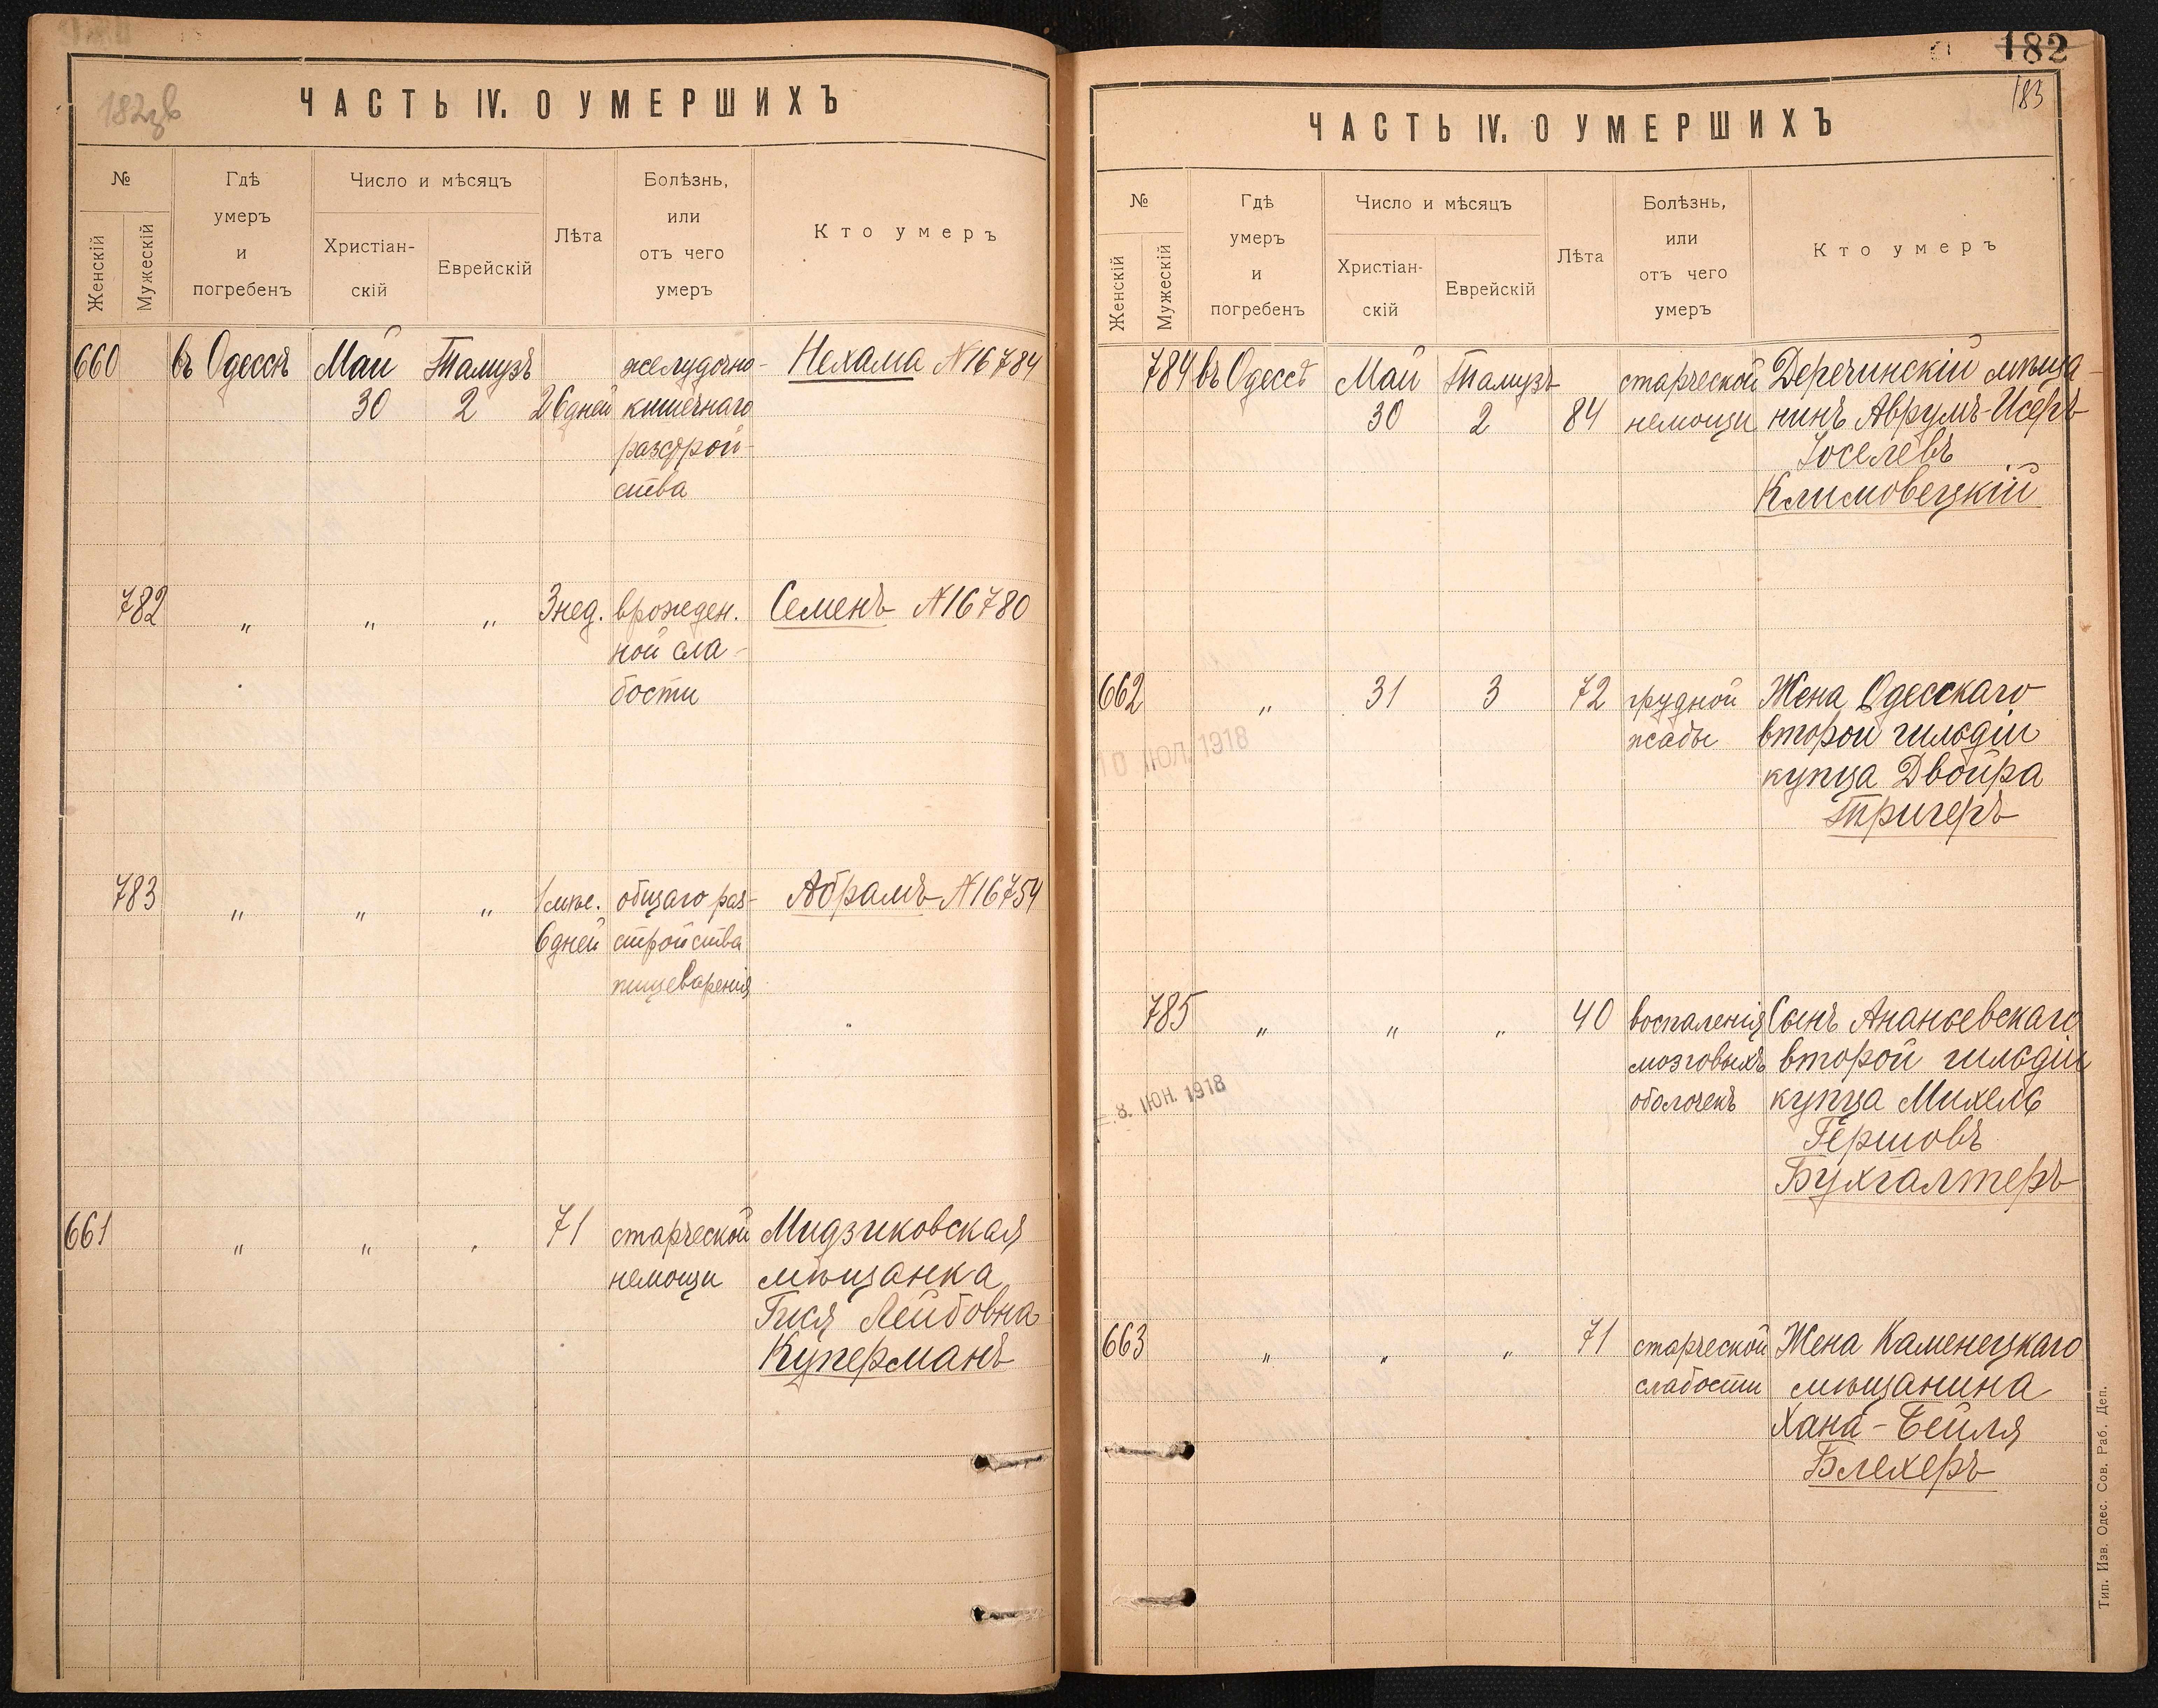 182зв
ЧАСТЬ IV. О УМЕРШИХЪ
№
Женскій
Мужескій
Гдѣ
умеръ
и
погребенъ
Число и мѣсяцъ
Христіан-
скій
Еврейскій
Лѣта
Болѣзнь,
или
отъ чего
умеръ
Кто умеръ
660 въ Одессѣ Май Тамузъ желудочно- Нехама №16784
30 2 26 дней кишечнаго
разстрой-
ства
782 " " " 3 нед. врожден. Семенъ №16780
ной сла-
бости
783 " " " 1 мѣс. общаго раз- Абрамъ №16754
6 дней стройства
пищеваренія
661 " " " 71 старческой Мидзиковская
немощи мѣщанка
Гися Лейбовна
Куперманъ
182
183
ЧАСТЬ IV. О УМЕРШИХЪ
№
Женскій
Мужескій
Гдѣ
умеръ
и
погребенъ
Число и мѣсяцъ
Христіан-
скій
Еврейскій
Лѣта
Болѣзнь,
или
отъ чего
умеръ
Кто умеръ
784 въ Одессѣ Май Тамузъ старческой Деречинскій мѣща-
30 2 84 немощи нинъ Аврумъ-Исеръ
Іоселевъ
Климовецкій
662 " 31 3 72 грудной Жена Одесскаго
жабы второй гильдіи
10 ІЮЛ. 1918
купца Двойра
Тригеръ
785 " " " 40 воспаленія Сынъ Ананьевскаго
мозговыхъ второй гильдіи
8. ІЮН. 1918
оболочекъ купца Михель
Гершовъ
Бухгалтеръ
663 " " " 71 старческой Жена Каменецкаго
слабости мѣщанина
Хана-Бейля
Блехеръ
Тип. Изв. Одес. Сов. Раб. Деп.